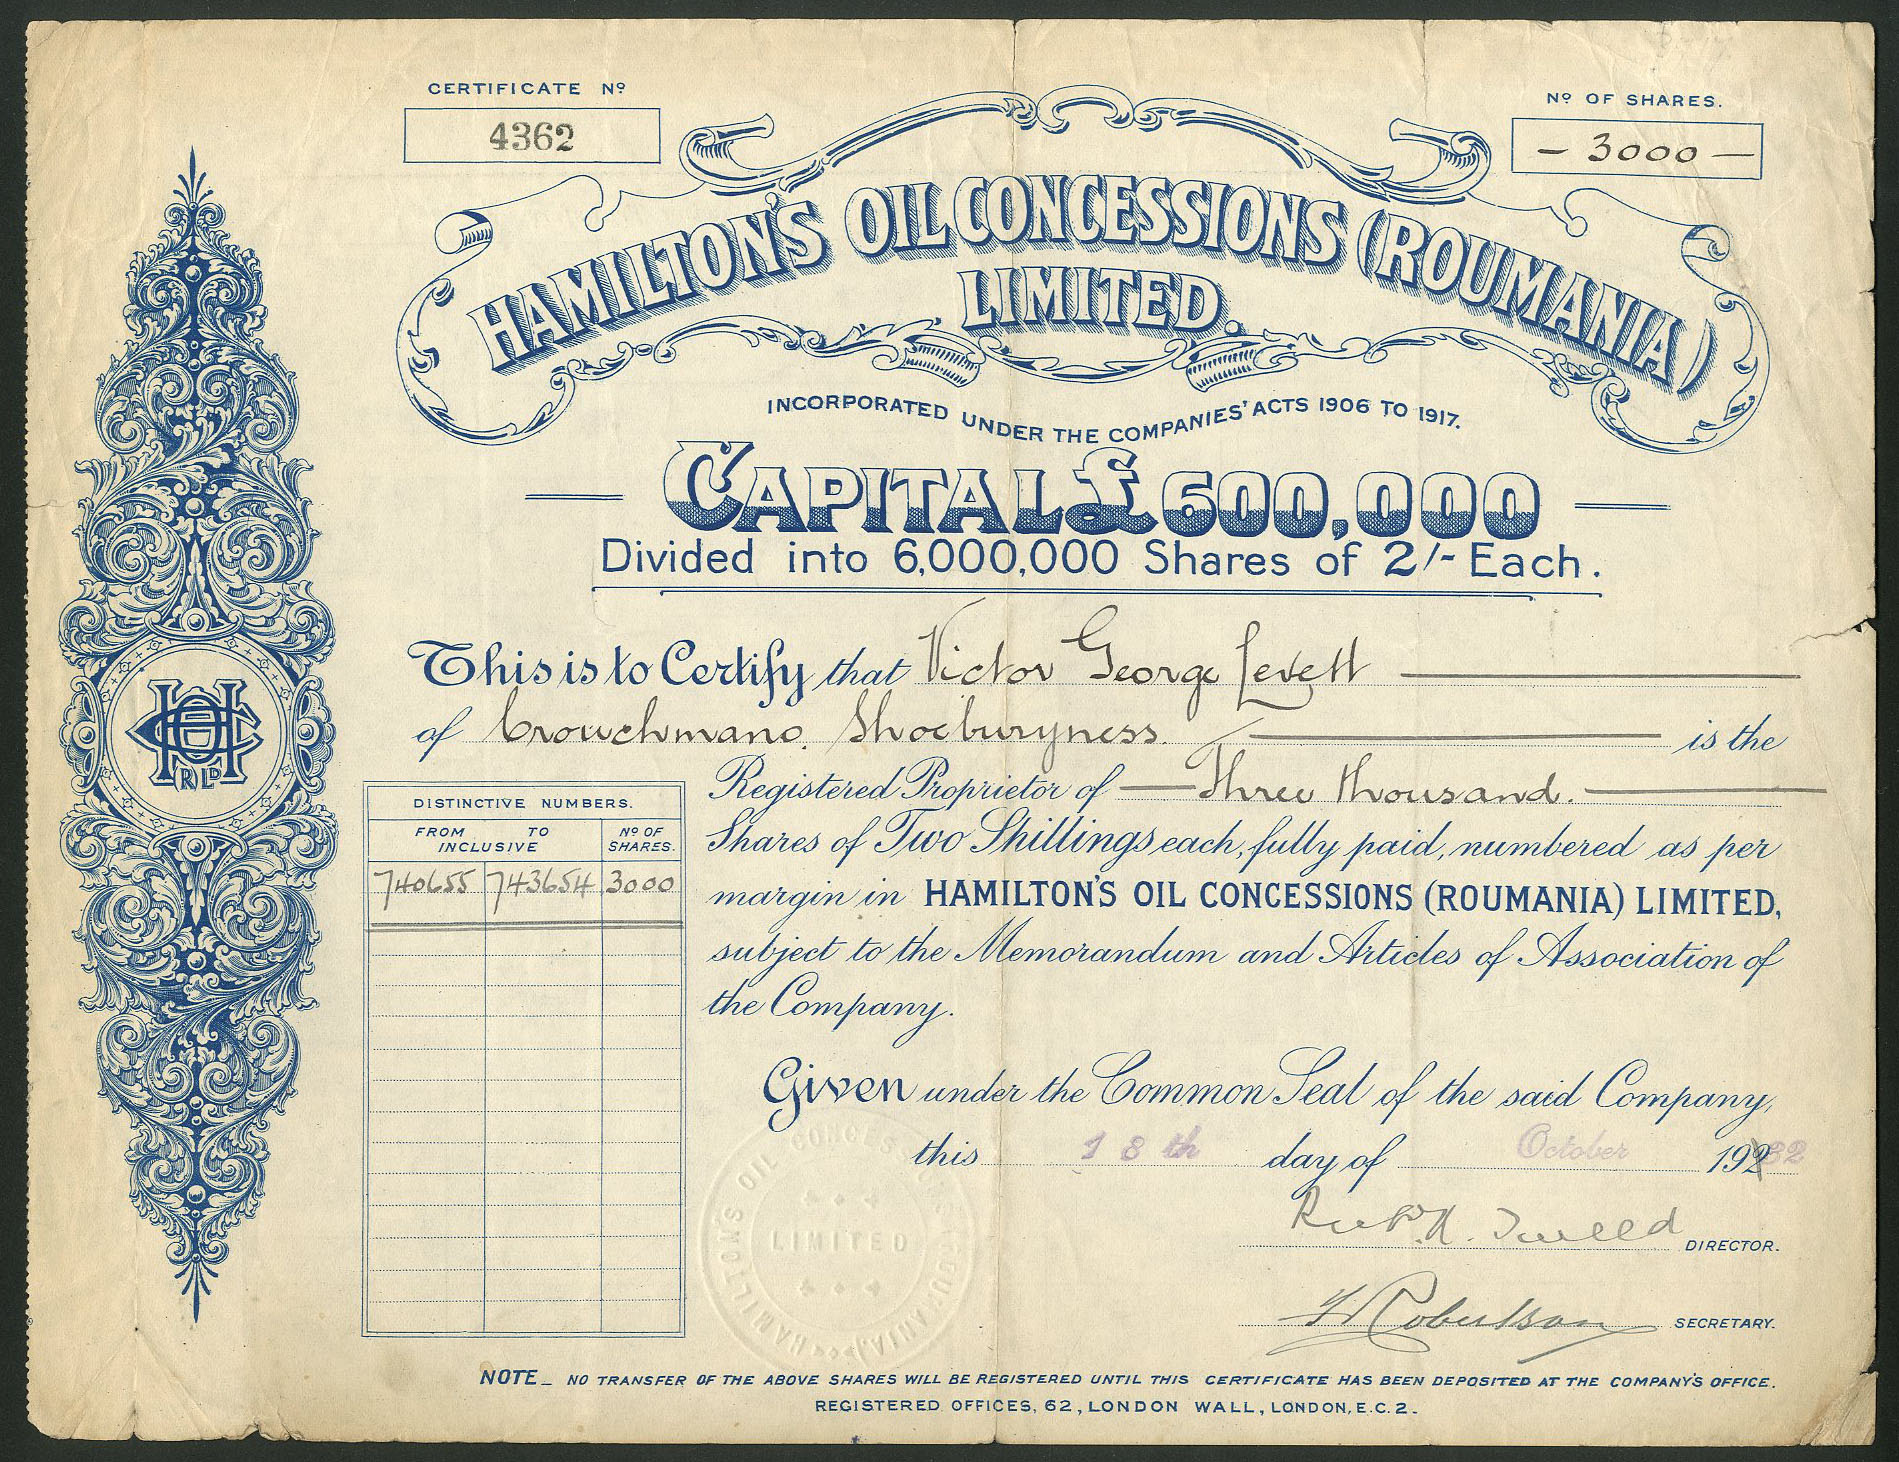 CERTIFICATE Nº
4362
Nº OF SHARES.
— 3000 —
HAMILTON'S OIL CONCESSIONS (ROUMANIA)
LIMITED.
INCORPORATED UNDER THE COMPANIES' ACTS 1906 TO 1917.
CAPITAL £600,000
Divided into 6,000,000 Shares of 2/- Each.
This is to Certify that Victor George Levett
of Crouchmans. Shoeburyness. is the
Registered Proprietor of — Three thousand. —
Shares of Two Shillings each, fully paid, numbered as per
margin in HAMILTON'S OIL CONCESSIONS (ROUMANIA) LIMITED,
subject to the Memorandum and Articles of Association of
the Company.
DISTINCTIVE NUMBERS.
FROM TO Nº OF
INCLUSIVE SHARES.
740655 743654 3000
Given under the Common Seal of the said Company,
this 18th day of October 19232
DIRECTOR.
Robertson SECRETARY.
HAMILTON'S OIL CONCESS ROUMANIA,
LIMITED
RLD
NOTE_ NO TRANSFER OF THE ABOVE SHARES WILL BE REGISTERED UNTIL THIS CERTIFICATE HAS BEEN DEPOSITED AT THE COMPANY'S OFFICE.
REGISTERED OFFICES, 62, LONDON WALL, LONDON, E.C.2.